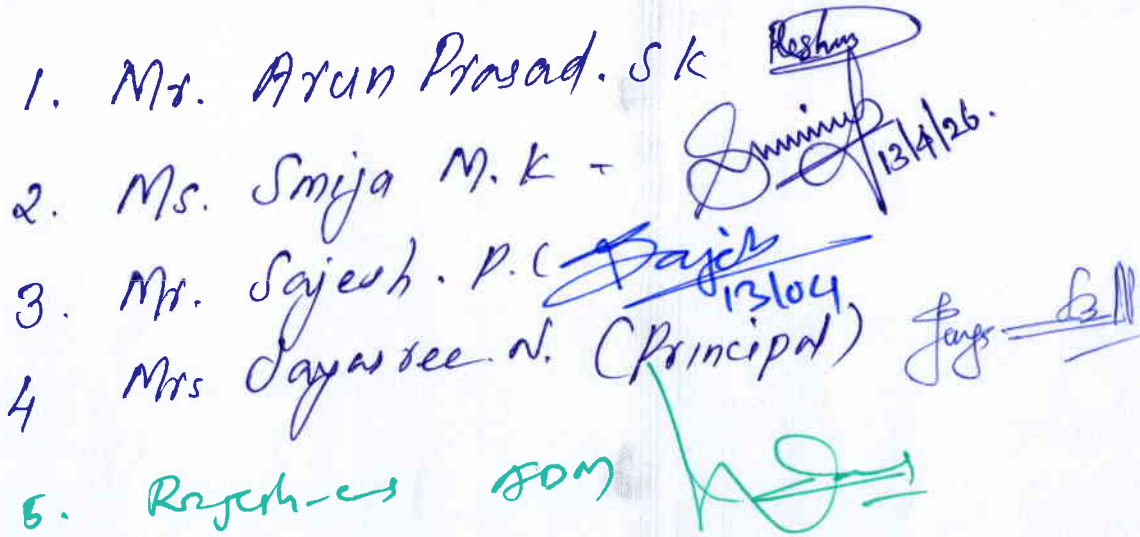 1. Mr. Arun Prasad. S K Reshma
2. Ms. Smija M. K - 13/4/26.
3. Mr. Sajesh. P. C Sajesh 13/04
4 Mrs Jayasree. N. (Principal)
5. Rajesh ADM